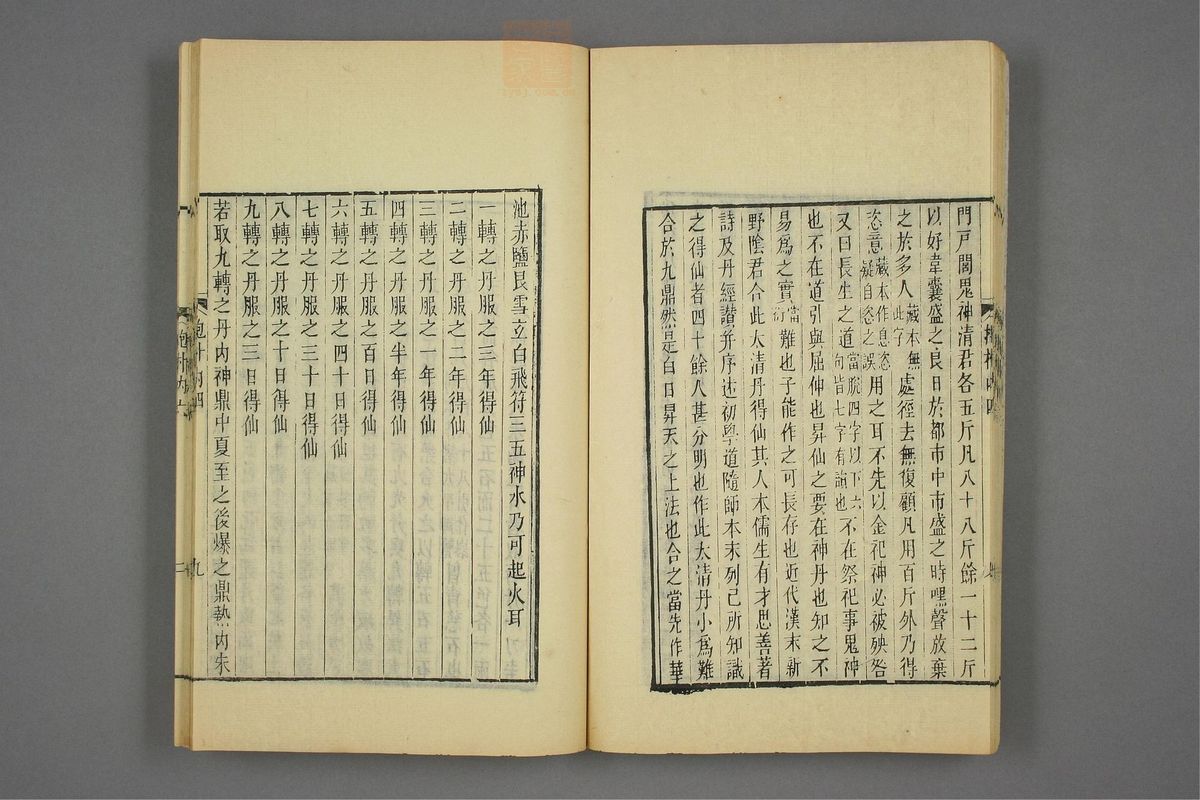 門戸閭鬼神清君各五斤凡八十八斤餘一十二斤
以好韋囊盛之良日於都市中市盛之時嘿聲放棄
之於多人藏本無此字處徑去無復顧凡用百斤外乃得
恣意藏本作息恣疑自恣之誤用之耳不先以金祀神必被殃咎
又曰長生之道當脫四字以下六句皆七字有韻也不在祭祀事鬼神
也不在道引與屈伸也昇仙之要在神丹也知之不
易爲之實當衍難也子能作之可長存也近代漢末新
野陰君合此太清丹得仙其人本儒生有才思善著
詩及丹經讚并序述初學道隨師本末列己所知識
之得仙者四十餘人甚分明也作此太清丹小爲難
合於九鼎然是白日昇天之上法也合之當先作華
池赤鹽艮雪立白飛符三五神水乃可起火耳
一轉之丹服之三年得仙
二轉之丹服之二年得仙
三轉之丹服之一年得仙
四轉之丹服之半年得仙
五轉之丹服之百日得仙
六轉之丹服之四十日得仙
七轉之丹服之三十日得仙
八轉之丹服之十日得仙
九轉之丹服之三日得仙
若取九轉之丹内神鼎中夏至之後爆之鼎熱内朱
抱朴内四
九